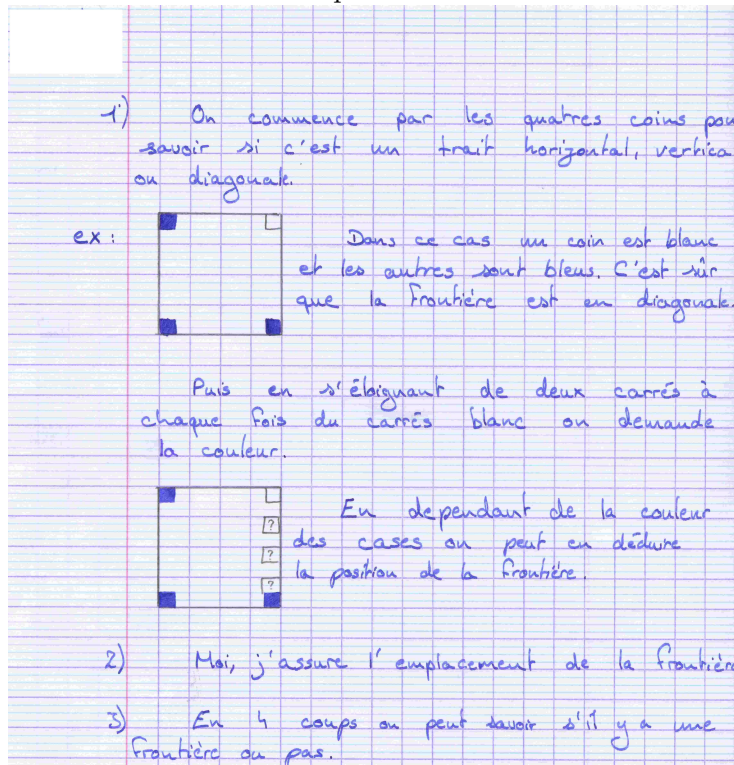 1) On commence par les quatres coins pou
savoir si c'est un trait horizontal, vertica
ou diagonale.
ex : Dans ce cas un coin est blanc
et les autres sont bleus. C'est sûr
que la frontière est en diagonale.
Puis en s'éloignant de deux carrés à
chaque fois du carrés blanc on demande
la couleur.
En dependant de la couleur
?
des cases on peut en déduire
?
la position de la frontière.
?
2) Moi, j'assure l'emplacement de la frontière
3) En 4 coups on peut savoir s'il y a une
frontière ou pas.